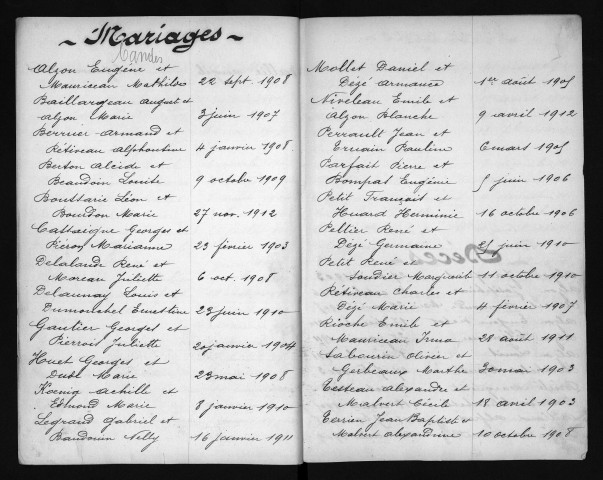 ~ Mariages ~
Candes
Alzon Eugène et
Mauriceau Mathilde 22 sept. 1908
Baillargeau August et
Alzon Marie 3 juin 1907
Berruer Armand et
Rétiveau Alphontine 4 janvier 1908
Berton Alcide et
Beaudoin Louise 9 octobre 1909
Boussarie Léon et
Bourdon Marie 27 nov. 1912
Castaigne Georges et
Marianne 23 février 1903
Delalande René et
Moreau Juliette 6 oct. 1908
Delaunay Louis et
Dumouchel Ernestine 23 juin 1910
Gautier Georges et
Pierrois Juliette 20 janvier 1904
Huet Georges et
Marie 23 mai 1908
Koenig Achille et
Edmond Marie 8 janvier 1910
Legrand Gabriel et
Baudouin Nelly 16 janvier 1911
Mollet Daniel et
Dézé Armance 1er août 1905
Niveleau Emile et
Alzon Blanche 9 avril 1912
Perrault Jean et
Pauline 6 mars 1905
Parfait Pierre et
Bompas Eugénie 5 juin 1906
Petit François et
Huard Herminie 16 octobre 1906
Pellier René et
Dézé Germaine 21 juin 1910
Petit René et
Soudier Marguerite 11 octobre 1910
Rétiveau Charles et
Dézé Marie 4 février 1907
Rioche Emile et
Mauriceau Irma 28 août 1911
Sabourin Olivier et
Gerbeaux Marthe 30 mai 1903
Testeau Alexandre et
Malvert Cécile 18 avril 1903
Terrien Jean Baptiste et
Malvert Alexandrine 10 octobre 1908